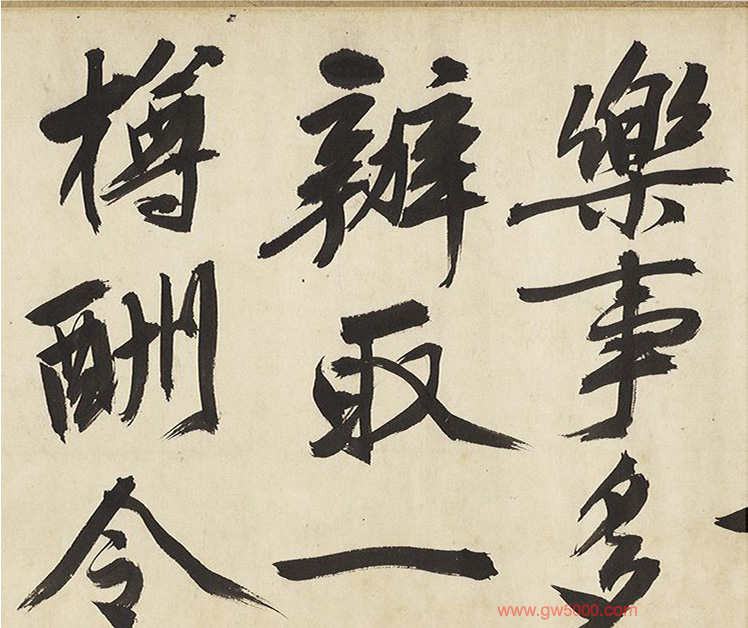 樂事多
辦取一
樽酬令
www.gw5000.com